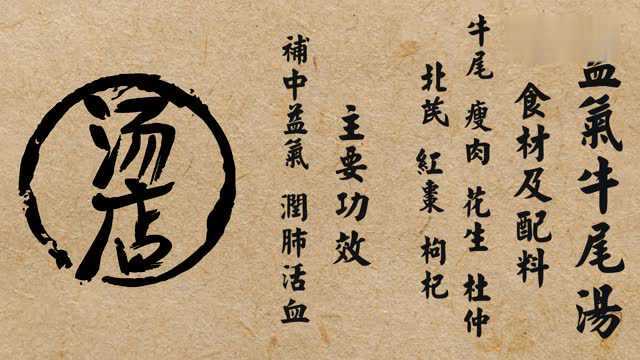 氣牛尾湯
食材及配料
牛尾 瘦肉 花生 杜仲
北芪 紅棗 枸杞
主要功效
補中益氣 潤肺活血
汤店